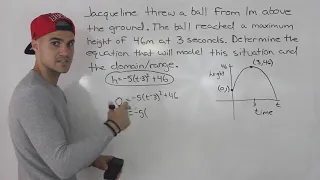 Jacqueline threw a ball from 1m above
the ground. The ball reached a maximum
height of 46m at 3 seconds. Determine the
equation that will model this situation and
the domain/range.
h=-5(t-3)²+46
0=-5(t-3)²+46
=-5(
height
(0,1)
(3,46)
3
t
time